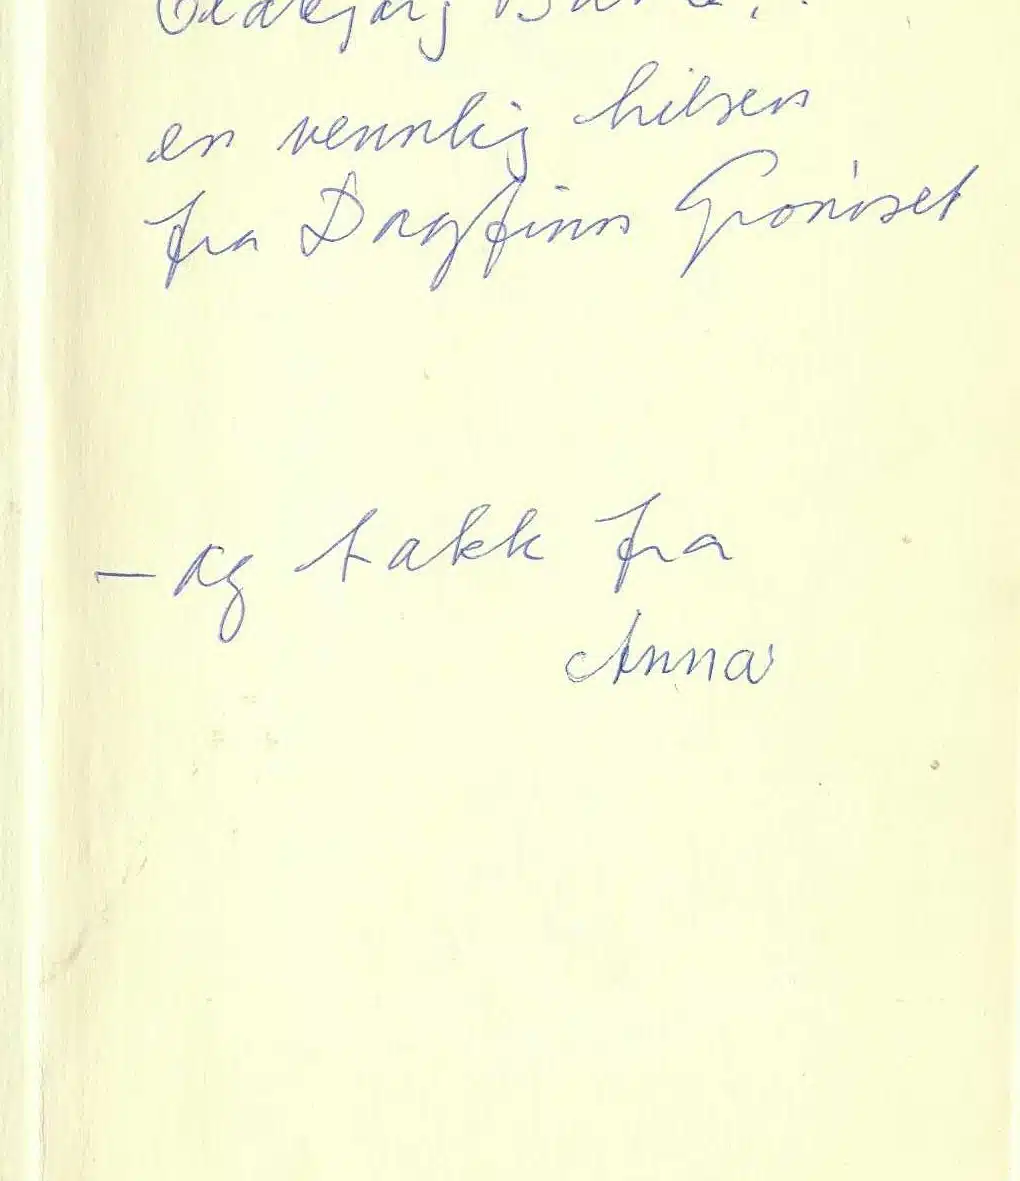 en vennlig hilsen
fra Dagfinn Grønoset
– og takk fra
Anna